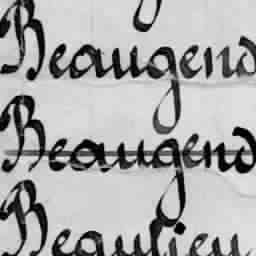 Beaugend
Beaugend
Beaulieu